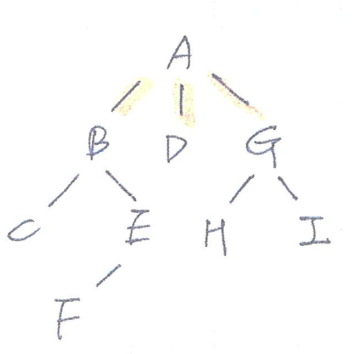 A
B D G
C E H I
F